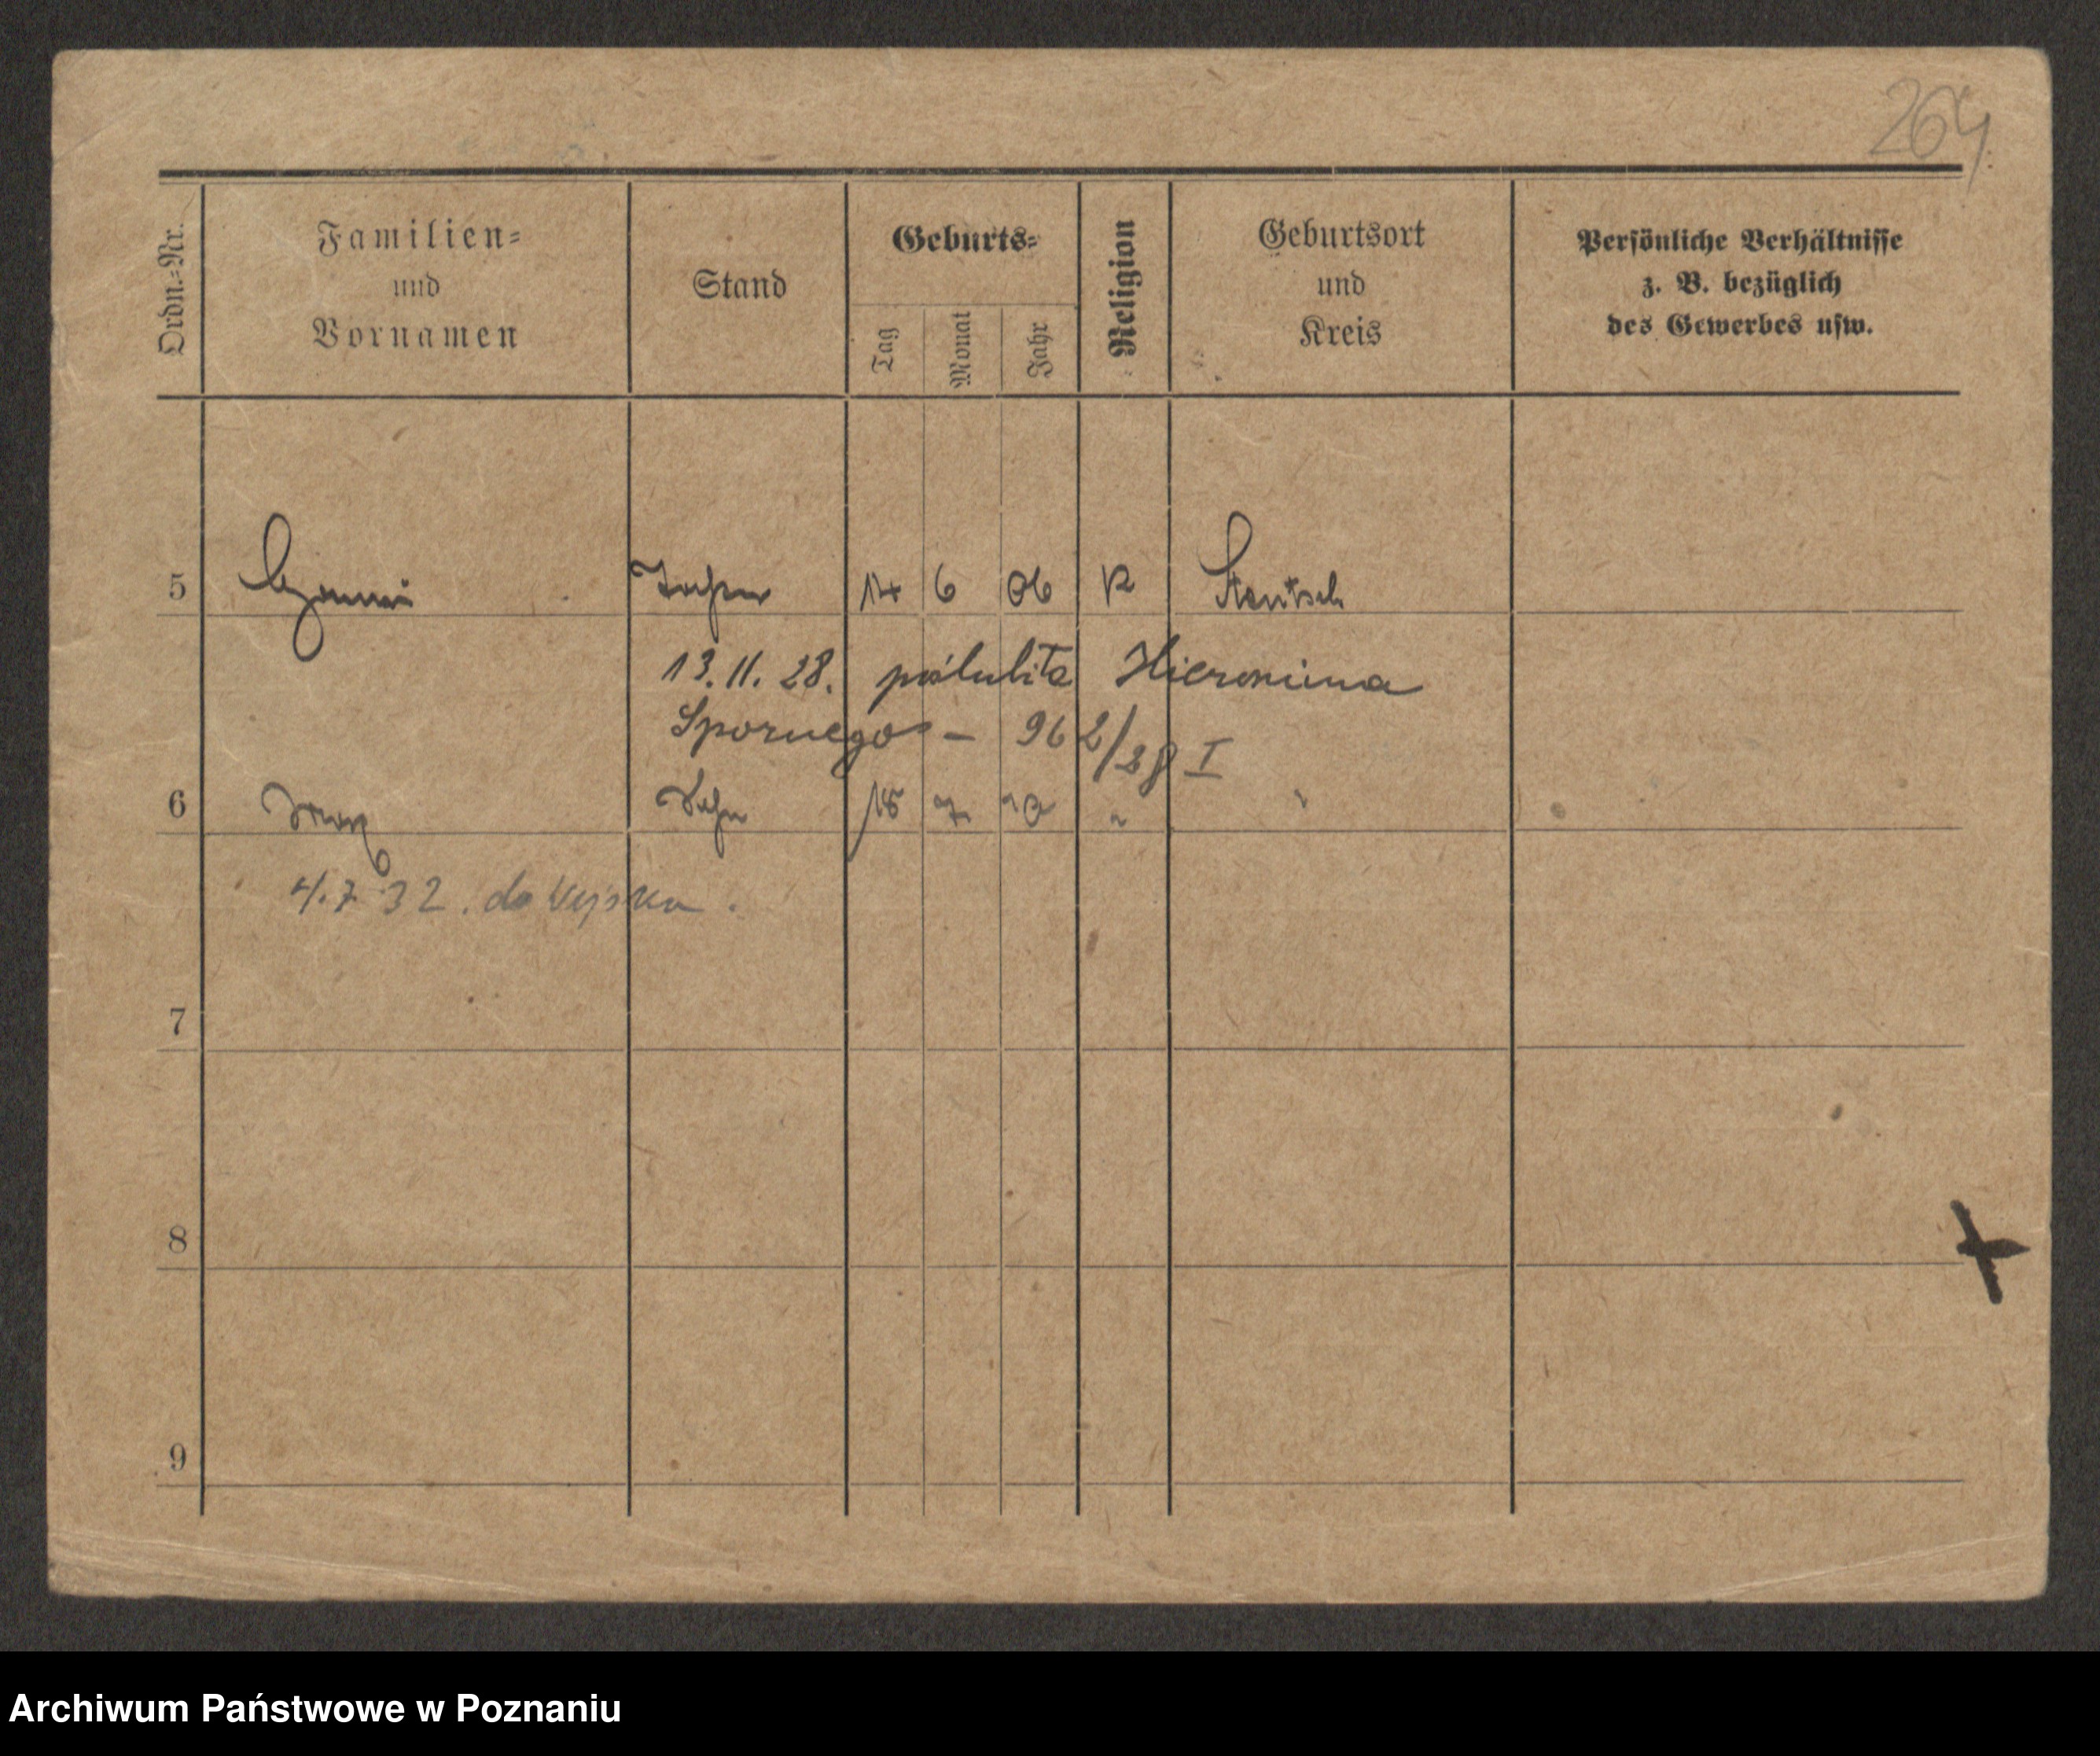 264
Ordn.=Nr.
Familien=
und
Vornamen
Stand
Geburts=
Tag
Monat
Jahr
Religion
Geburtsort
und
Kreis
Persönliche Verhältnisse
z. B. bezüglich
des Gewerbes usw.
5 14 6 06 K
13. 11. 28. poślubiła Hieronima
Spornego - 962/28 I
6 Sohn 15 7 10 "
4. 7. 32. do Wojska.
7
8
9
Archiwum Państwowe w Poznaniu